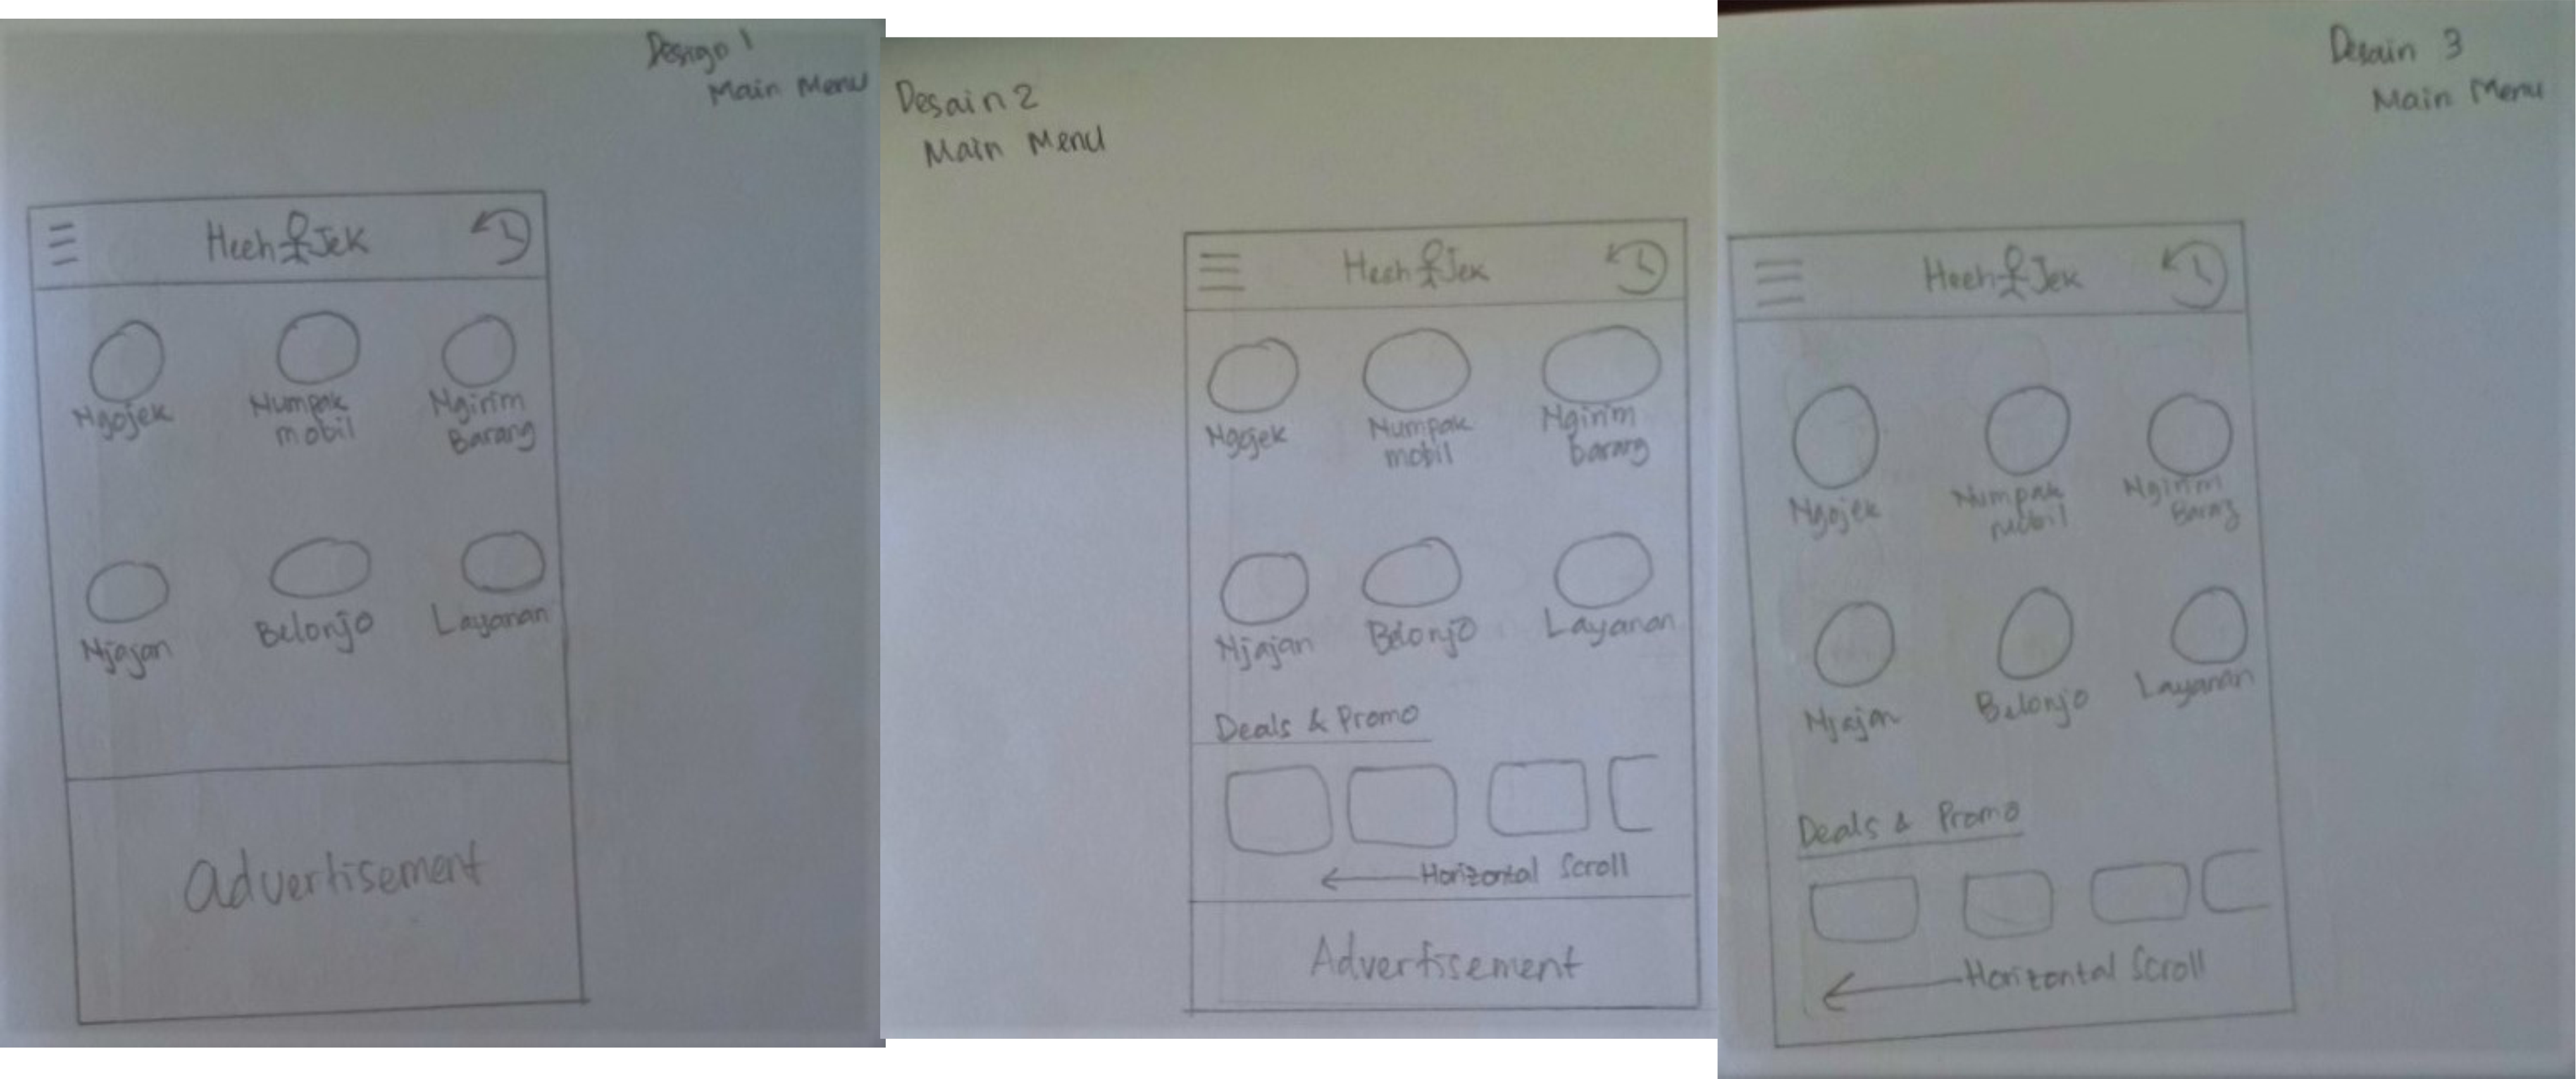 Design 1
Main Menu
Heeh Jek
Ngojek
Numpak
mobil
Ngirim
Barang
Njajan
Belonjo
Layanan
Advertisement
Desain 2
Main Menu
Heeh Jek
Ngojek
Numpak
mobil
Ngirim
barang
Njajan
Belonjo
Layanan
Deals & Promo
Horizontal Scroll
Advertisement
Desain 3
Main Menu
Heeh Jek
Ngojek
Numpak
Mobil
Ngirim
Barang
Njajan
Belonjo
Layanan
Deals & Promo
Horizontal Scroll